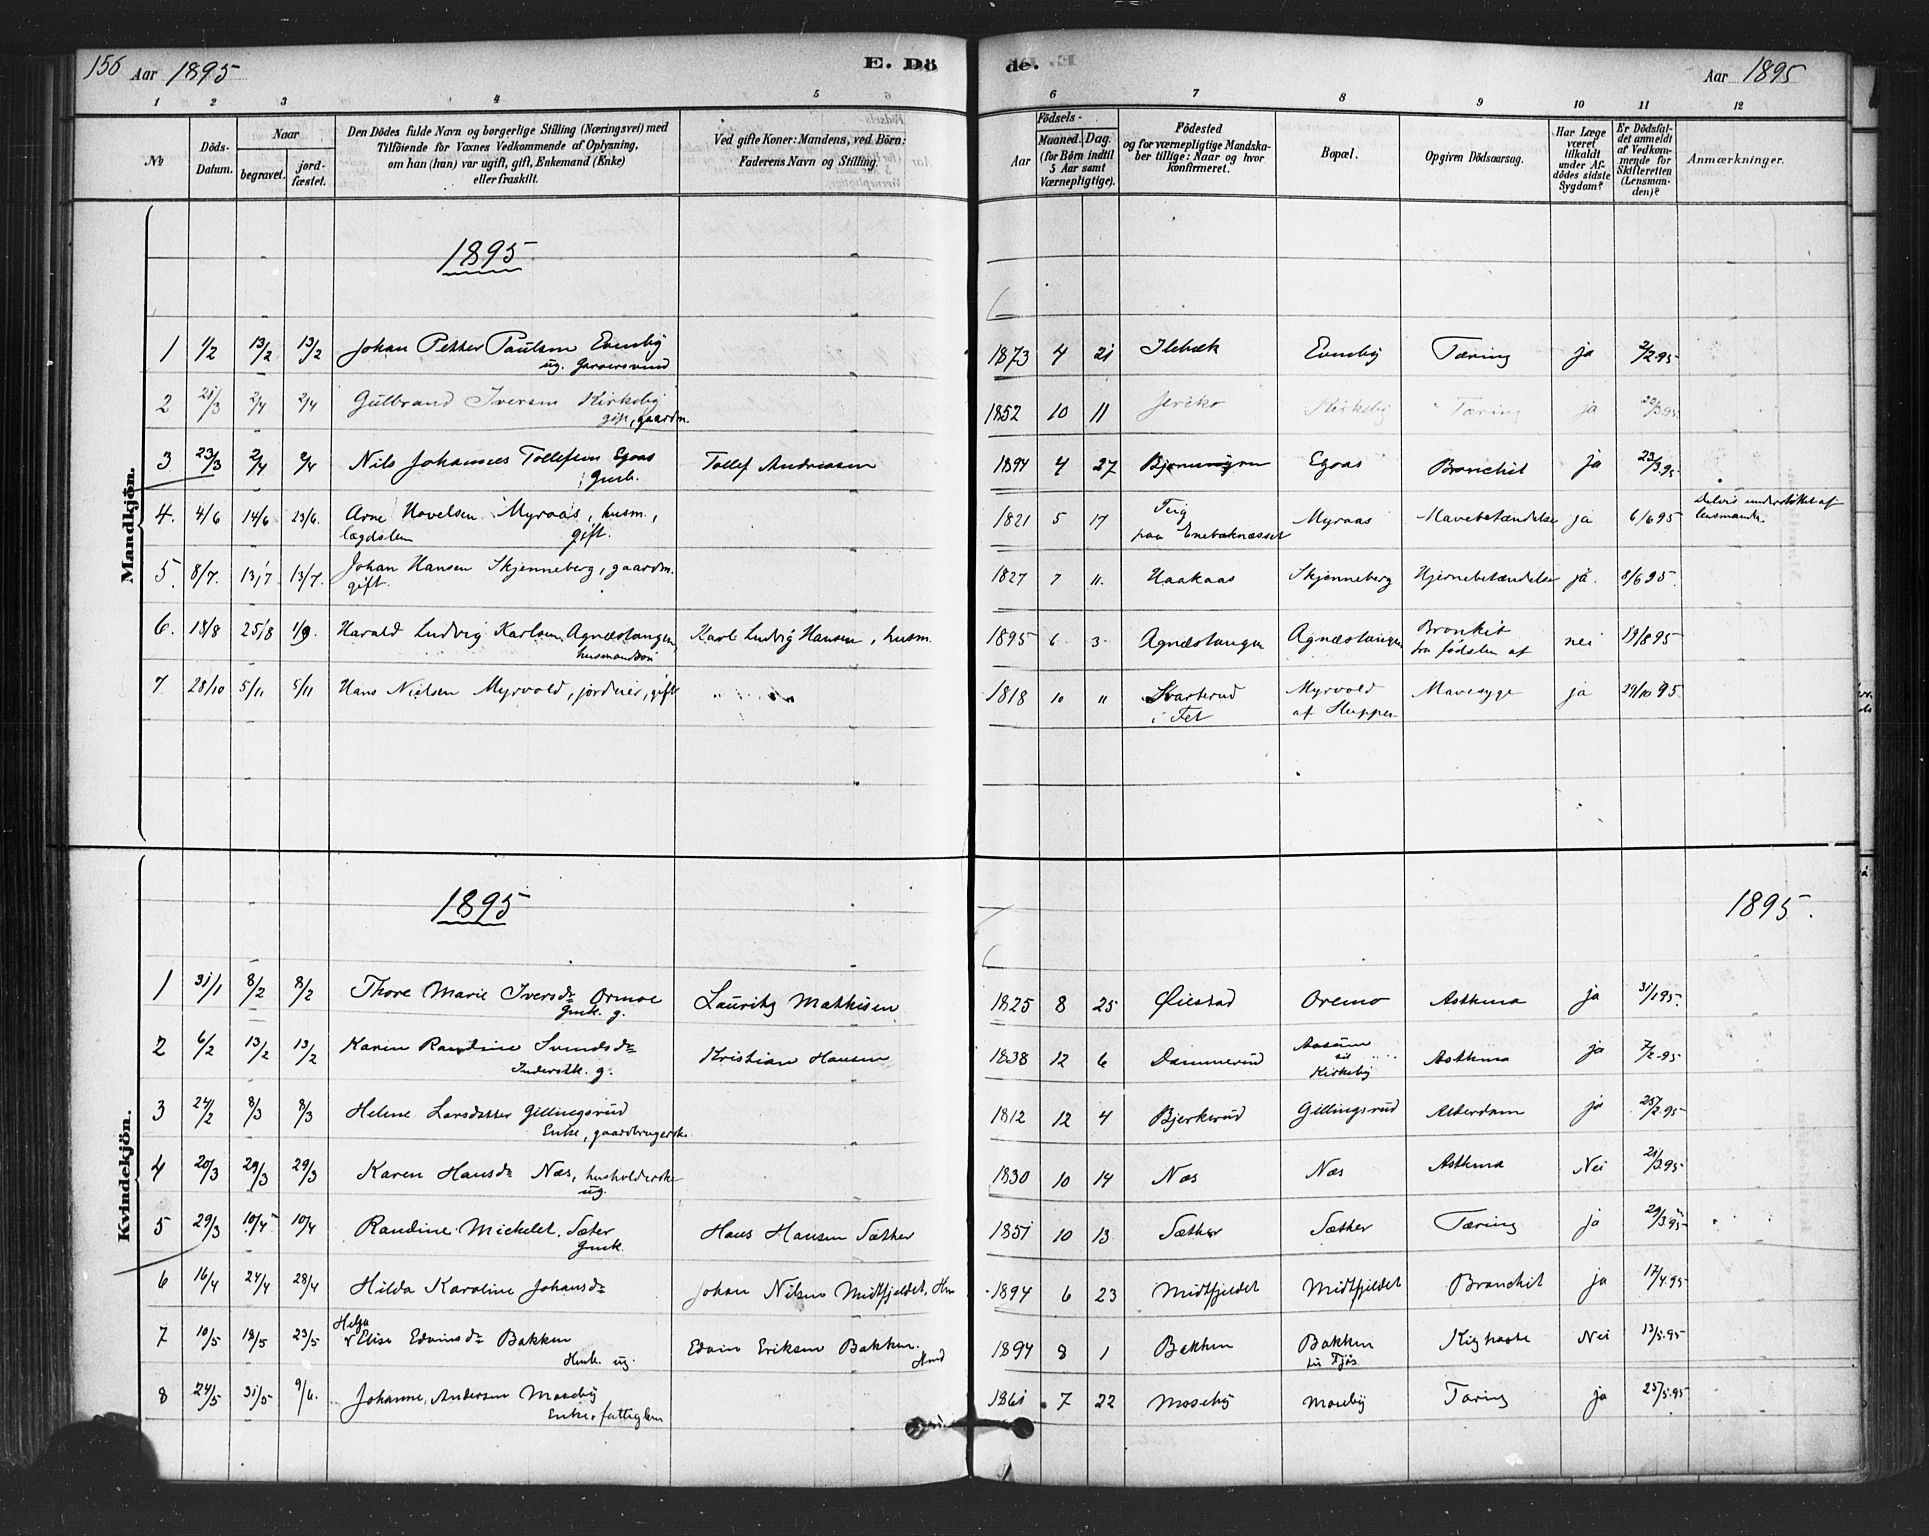 156 Aar 1895
E. Dö
de.
Aar 1895
1 2 3 4 5
6 7 8 9 10 11 12
No
Döds-Datum.
Naar
begravet.
jord-fæstet.
Den Dödes fulde Navn og borgerlige Stilling (Næringsvei) med
Tilföiende for Voxnes Vedkommende af Oplysning,
om han (hun) var ugift, gift, Enkemand (Enke)
eller fraskilt.
Ved gifte Koner: Mandens, ved Börn:
Faderens Navn og Stilling.
Födsels-
Aar
Maaned. Dag.
(for Börn indtil
5 Aar samt
Værnepligtige).
Födested
og for værnepligtige Mandska-
ber tillige: Naar og hvor
konfirmeret.
Bopæl.
Opgiven Dödsaarsag.
Har Læge
været
tilkaldt
under Af-
dödes sidste
Sygdom?
Er Dödsfal-
det anmeldt
af Vedkom-
mende for
Skifteretten
(Lensman-
den)?
Anmærkninger.
Mandkjön.
1895
1 1/2 13/2 13/2 Johan Petter Paulsen Evensby 1873 4 21 Ilebæk Evensby Tæring ja 2/2 95
ug. Garversvend
2 21/3 2/4 2/4 Gulbrand Iversen Kirkeby 1852 10 11 Jeriko Kirkeby Tæring ja 22/3 95
gift, gaardm.
3 23/3 2/4 2/4 Nils Johannes Tollefsen Egaas Tollef Andreassen 1894 4 27 Egaas Bronchit ja 23/3 95
4. 4/6 14/6 23/6. Arne Hovelsen Myraas, husm., 1821 5 17 Teig Myraas Mavebetændelse ja 6/6 95 Delvis understøttet af
lægdslem gift. paa Enebaknesset lensmanden
5. 8/7. 13/7 13/7. Johan Hansen Skjenneberg, gaardm. 1827 7 11. Haakaas Skjenneberg Hjernebetændelse ja. 8/6 95.
gift.
6. 18/8 25/8 1/9. Harald Ludvig Karlsen Agnæstangen, Karl Ludvig Hansen, husm. 1895 6 3 Agnæstangen Agnæstangen Bronkit nei 19/8 95
husmandssøn fra fødslen af
7 28/10 5/11 5/11 Hans Nielsen Myrvold, jordeier, gift 1818 10 11 Svarterud Myrvold Mavesyge ja 29/10 95
i Fet af Hupper
Kvindekjön.
1895
1895.
1 31/1 8/2 8/2 Thore Marie Iversdr Ormoe Lauritz Mathisen 1825 8 25 Øiestad Oremo Asthma ja 31/1 95.
g.
2 6/2 13/2 13/2 Karen Randine Svendsdr Kristian Hansen 1838 12 6 Dammerud Asthma ja 7/2 95
Inderstk. g. Kirkeby
3 24/2 8/3 8/3 Helene Larsdatter Gillingsrud 1812 12 4 Bjerkerud Gillingsrud Alderdom ja 25/2 95
Enke, gaardbrugerske
4 20/3 29/3 29/3 Karen Hansdr Næs, husholderske 1830 10 14 Næs Næs Asthma Nei 21/3 95
ug.
5 29/3 10/4 10/4 Randine Mickelet. Sæter Hans Hansen Sæther 1851 10 13 Sæther Sæther Tæring ja 29/3 95
6 16/4 24/4 28/4 Hilda Karoline Johansdr Johan Nilsen Midtfjeldet, 1894 6 23 Midtfjeldet Midtfjeldet Bronchit ja 17/4 95
7 10/5 18/5 23/5 Helga Elise Edvinsdr Bakken Edvin Eriksen Bakken. 1894 8 1 Bakken Bakken Kighoste Nei 13/5 95
ug.
8 24/5 31/5 9/6. Johanne Andersen Moseby 1861 7 22 Moseby Moseby Tæring ja 25/5 95
Enke, fattiglem